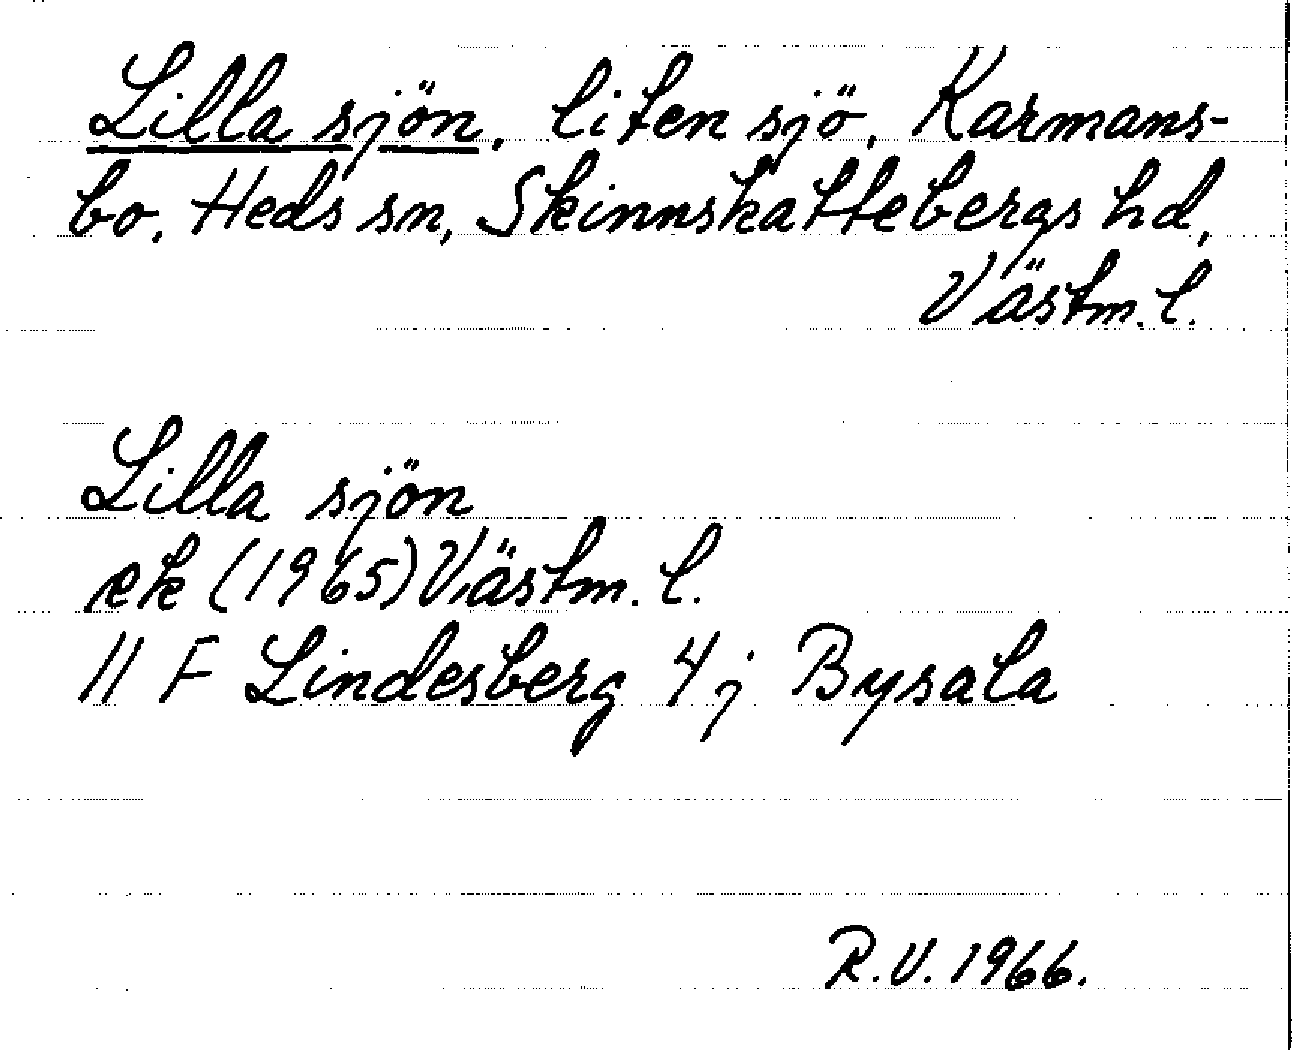 Lilla sjön, liten sjö, Karmans-
bo, Heds sn, Skinnskattebergs hd,
Västm. l.
Lilla sjön
ek (1965) Västm. l.
11 F Lindesberg 4 j Bysala
R.V. 1966.